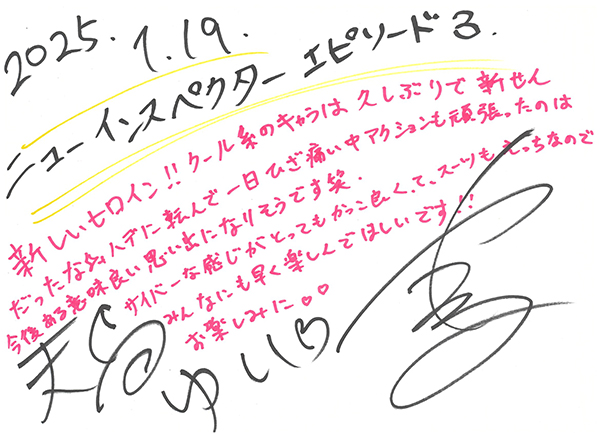 2025.1.19.
ニューインスペクター エピソード3.
新しいヒロイン!!クール系のキャラは久しぶりで新せん
だったなぁ ハデに転んで一日ひざ痛い中アクションも頑張ったのは
今後ある意味良い思い出になりそうです笑.
サイバーな感じがとってもかっこ良くて、スーツもえっちなので
みんなにも早く楽しんでほしいです!!
お楽しみに♡♡
天
ゆいり